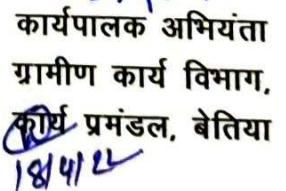 कार्यपालक अभियंता
ग्रामीण कार्य विभाग,
कार्य प्रमंडल, बेतिया
18/4/22